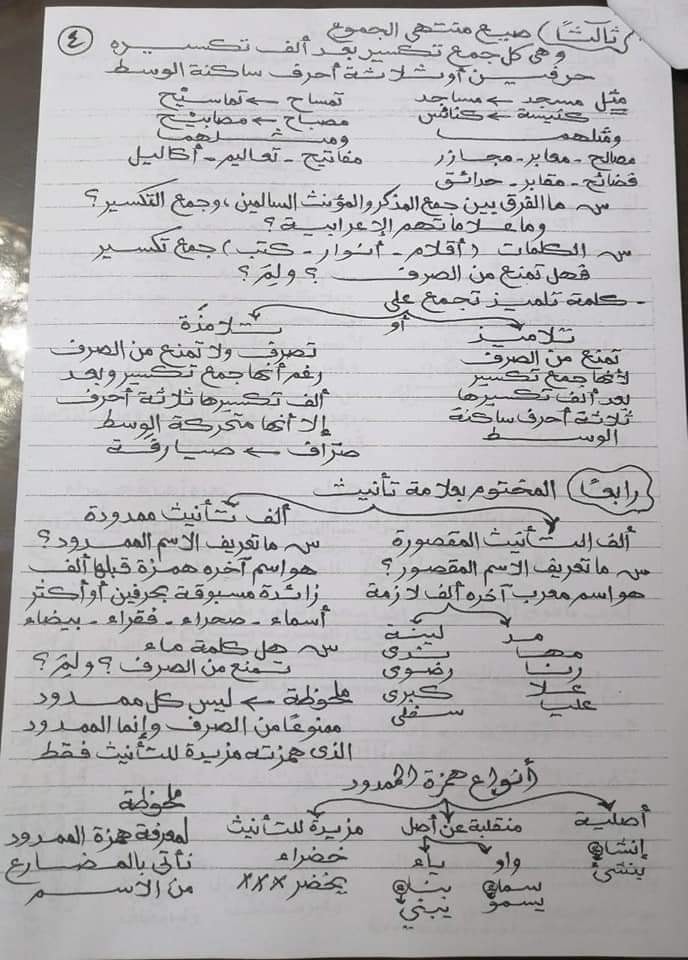 ٤
ثالثًا) صيغ منتهى الجموع
وهى كل جمع تكسير بعد ألف تكسيره
حرفين أو ثلاثة أحرف ساكنة الوسط
مثل مسجد ← مساجد تمساح ← تماسيح
كنيسة ← كنائس مصباح ← مصابيح
ومثلهما ومثلهما
مصالح - معابر - مجازر مفاتيح - تعاليم - أكاليل
فضائح - مقابر - حدائق
س ما الفرق بين جمع المذكر والمؤنث السالمين، وجمع التكسير؟
وما علاماتهم الإعرابية؟
س الكلمات (أقلام - أنوار - كتب) جمع تكسير
فهل تمنع من الصرف ؟ ولِمَ؟
- كلمة تلميذ تجمع على
تلاميذ أو تلامذة
تمنع من الصرف تصرف ولا تمنع من الصرف
لأنها جمع تكسير رغم أنها جمع تكسير وبعد
بعد ألف تكسيرها ألف تكسيرها ثلاثة أحرف
ثلاثة أحرف ساكنة إلا أنها متحركة الوسط
الوسط صرّاف ← صيارفة
رابعًا) المختوم بعلامة تأنيث
ألف التأنيث المقصورة ألف تأنيث ممدودة
س ما تعريف الاسم المقصور؟ س ما تعريف الاسم الممدود؟
هو اسم معرب آخره ألف لازمة هو اسم آخره همزة قبلها ألف
زائدة مسبوقة بحرفين أو أكثر
مد لينة أسماء - صحراء - فقراء - بيضاء
مها ندى س هل كلمة ماء
رنا رضوى تمنع من الصرف؟ ولِمَ؟
علا كبرى ملحوظة ← ليس كل ممدود
سفلى ممنوعًا من الصرف وإنما الممدود
الذى همزته مزيدة للتأنيث فقط
أنواع همزة الممدود
أصلية منقلبة عن أصل مزيدة للتأنيث ملحوظة
إنشاء واو ياء خضراء لمعرفة همزة الممدود
ينشئ سماء بناء يخضر xxx نأتى بالمضارع
يسمو يبني من الاسم